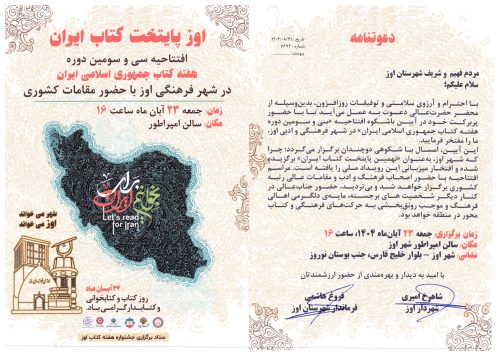 اوز پایتخت کتاب ایران
افتتاحیه سی و سومین دوره
هفته کتاب جمهوری اسلامی ایران
در شهر فرهنگی اوز با حضور مقامات کشوری
زمان: جمعه ۲۳ آبان ماه ساعت ۱۶
مکان: سالن امپراطور
بخوانیم
برای
ایران
Let's read
for Iran
شهر می خواند
اوز می خواند
۲۴ آبان ماه
روز کتاب و کتابخوانی
و کتابدار گرامی باد.
ستاد برگزاری جشنواره هفته کتاب اوز
دعوتنامه
تاریخ: ۱۴۰۴/۰۸/۲۱
شماره: ۷۶۹۲
پیوست:
مردم فهیم و شریف شهرستان اوز
سلام علیکم؛
با احترام و آرزوی سلامتی و توفیقات روزافزون، بدین‌وسیله از
محضر حضرت‌عالی دعوت به عمل می‌آید تا با حضور
پربرکت خود در آیین باشکوه افتتاحیه «سی و سومین دوره
هفته کتاب جمهوری اسلامی ایران» در شهر فرهنگی و ادبی اوز،
ما را مفتخر فرمایید.
این آیین، امسال با شکوهی دوچندان برگزار می‌گردد؛ چرا
که شهر اوز، به‌عنوان «نهمین پایتخت کتاب ایران» برگزیده
شده و افتخار میزبانی این رویداد ملی را یافته است. مراسم
افتتاحیه با حضور اصحاب فرهنگ و ادب و مقامات عالی رتبه
کشوری برگزار خواهد شد و بی‌تردید، حضور جناب‌عالی در
کنار دیگر شخصیت های برجسته، مایه‌ی دلگرمی اهالی
فرهنگ و موجب رونق‌بخشی به حرکت‌های فرهنگی و کتاب
محور در منطقه خواهد بود.
زمان برگزاری: جمعه ۲۳ آبان‌ماه ۱۴۰۴، ساعت ۱۶
مکان: سالن امپراطور شهر اوز
نشانی: شهر اوز – بلوار خلیج فارس، جنب بوستان نوروز
با امید به دیدار و بهره‌مندی از حضور ارزشمندتان
شاهرخ امیری
شهردار اوز
فروغ هاشمی
فرماندار شهرستان اوز